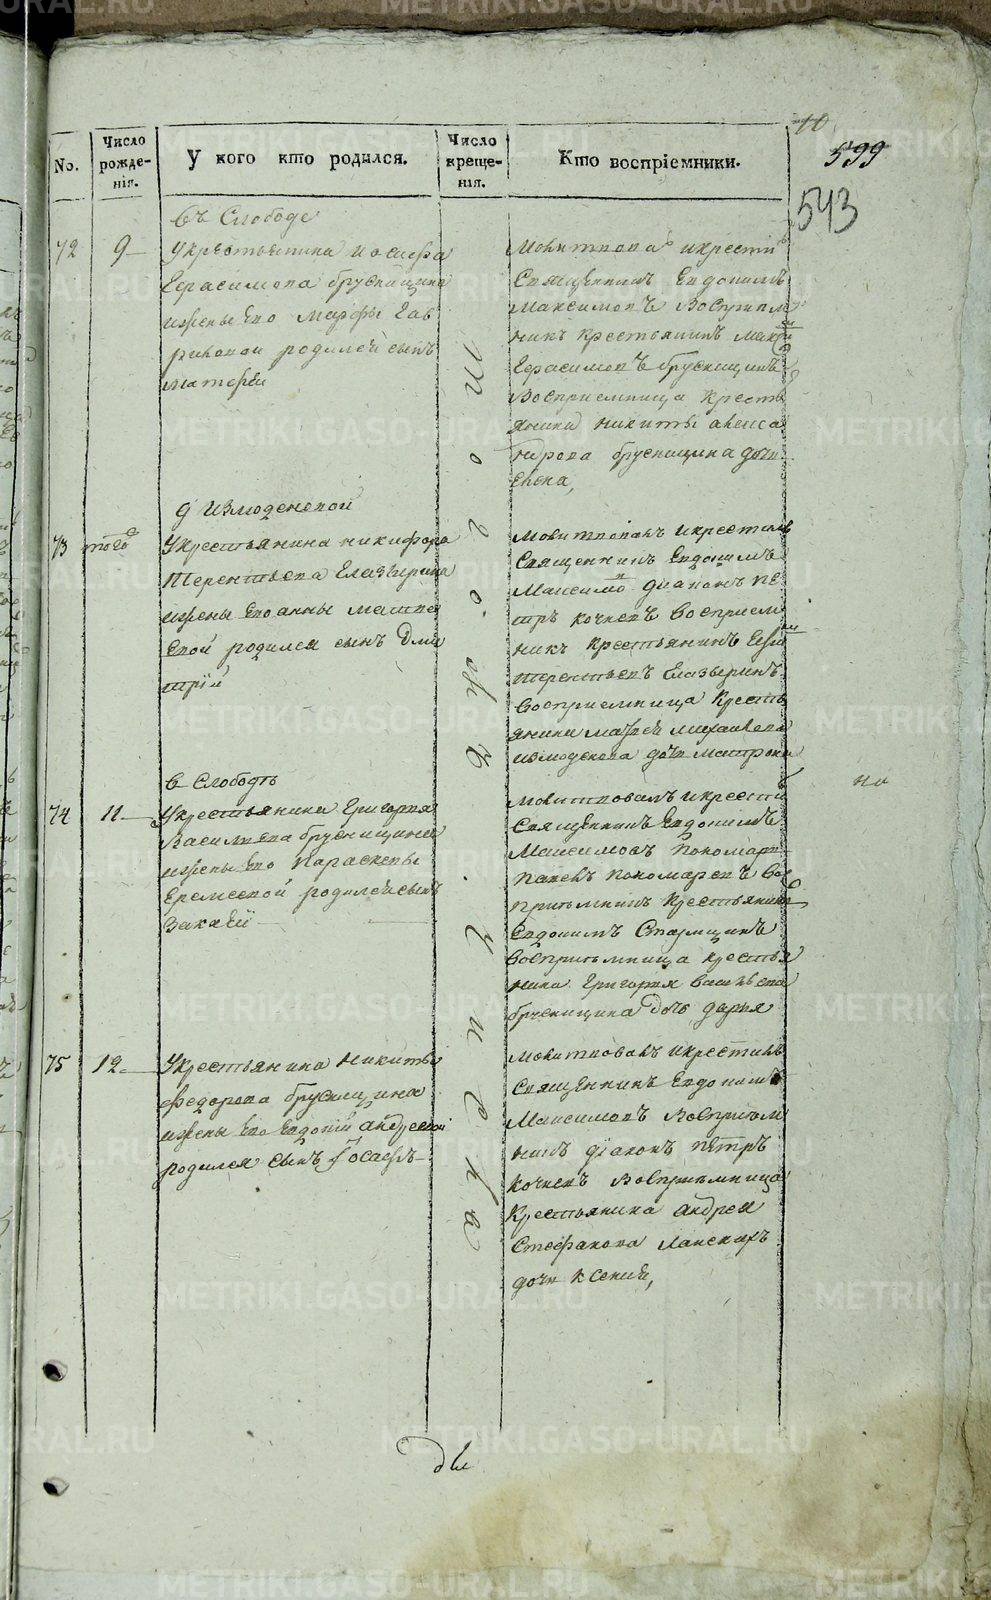 10
599
543
No.
Число рожде-нія.
У кого кто родился.
Число креще-нія.
Кто воспріемники.
въ Слободе
72 9
Укрестьянина иосифа
Герасимова брусницина
ижены Его марфы Гав
риловой родился сынъ
матфей
Молитвовалъ икрестилъ
Священникъ Евдокимъ
Максимовъ Восприем
никъ Крестьянинъ
Герасимовъ брусницинъ
Восприемница Кресть
янина никиты алекса
ндрова брусницина дочь
д измоденовой
73 того
Укрестьянина никифора
Терентьева Елазверина
ижены Его анны матве
евой родился сынъ Дми
трій
Молитвовалъ икрестилъ
Священникъ Евдокимъ
Максимо діаконъ Пе
тръ кочневъ Восприем
никъ Крестьянинъ
терентьевъ Елазверинъ
Восприемница Кресть
янина михайлова
измоденова дочь матрона
в Слободѣ
74 11
Укрестьянина Григорья
Васильева брусницина
ижены Его Параскевы
Еремеевой родился сынъ
Закхей
Молитвовалъ икрести
Священникъ Евдокимъ
Максимовъ пономарь
пономаревъ Вос
пріемникъ Крестьянинъ
Евдокимъ
Воспріемница крестья
нина Григорья васильева
брусницина дочь дарья
но
75 12
Укрестьянина Никиты
Федорова брусницина
ижены Его Евдокіи андреевой
родился сынъ Іосафъ
Молитвовалъ икрестилъ
Священникъ Евдокимъ
Максимовъ Воспріем
никъ діаконъ пётръ
Кочневъ Воспріемница
Крестьянина андрея
Стефанова Ланскихъ
дочь Ксения,
того ж ъ числа
METRIKI.GASO-URAL.RU